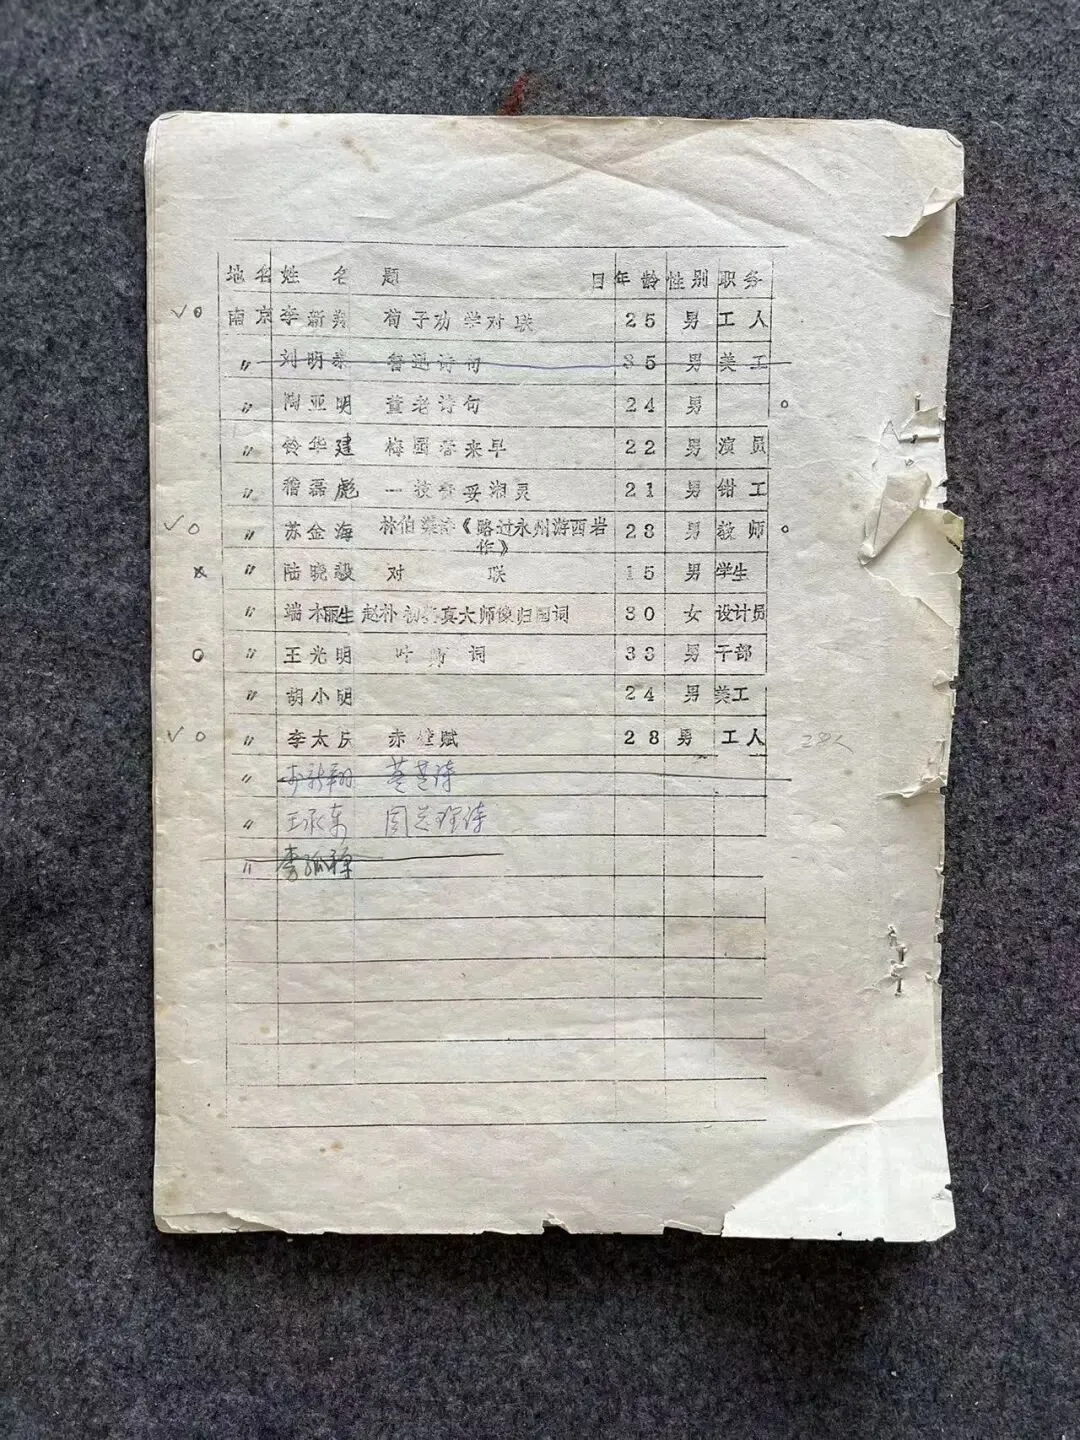 地名 姓名 题目 年龄 性别 职务
√o 南京 李新翔 荀子劝学对联 25 男 工人
〃 刘明 鲁迅诗句 35 男 美工
〃 陶亚明 董老诗句 24 男 o
〃 铃华建 梅园春来早 22 男 演员
〃 嵇磊彪 一枝 妥湘灵 21 男 钳工
√o 〃 苏金海 林伯渠诗《略过永州游西岩 28 男 教师 o
作》
x 〃 陆晓毅 对联 15 男 学生
〃 端木丽生 赵朴初 真大师像归国词 30 女 设计员
o 〃 王光明 叶帅词 33 男 干部
〃 胡小明 24 男 美工
√o 〃 李太庆 赤壁赋 28 男 工人 28人
〃 李新翔
〃 王承东 周总理诗
〃 李